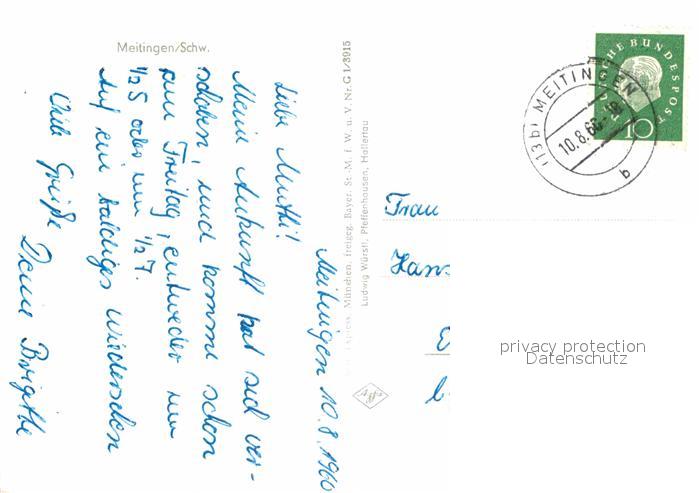 Meitingen/Schw.
Meitingen 10.8.1960
Liebe Mutti!
Meine Ankunft hat sich ver-
schoben, und komme schon
am Freitag, entweder um
1/2 5 oder um 1/2 7.
Auf ein baldiges Wiedersehen
Viele Grüße
Deine Brigitte
München, freigeg. Bayer. St.-M. f. W. u. V. Nr. G 1/3915
Ludwig Würstl, Pfeffenhausen, Hallertau
SCHE BUNDESPOST
10
(13b) MEITINGEN
10.8.60
b
Frau
Hans
privacy protection
Datenschutz